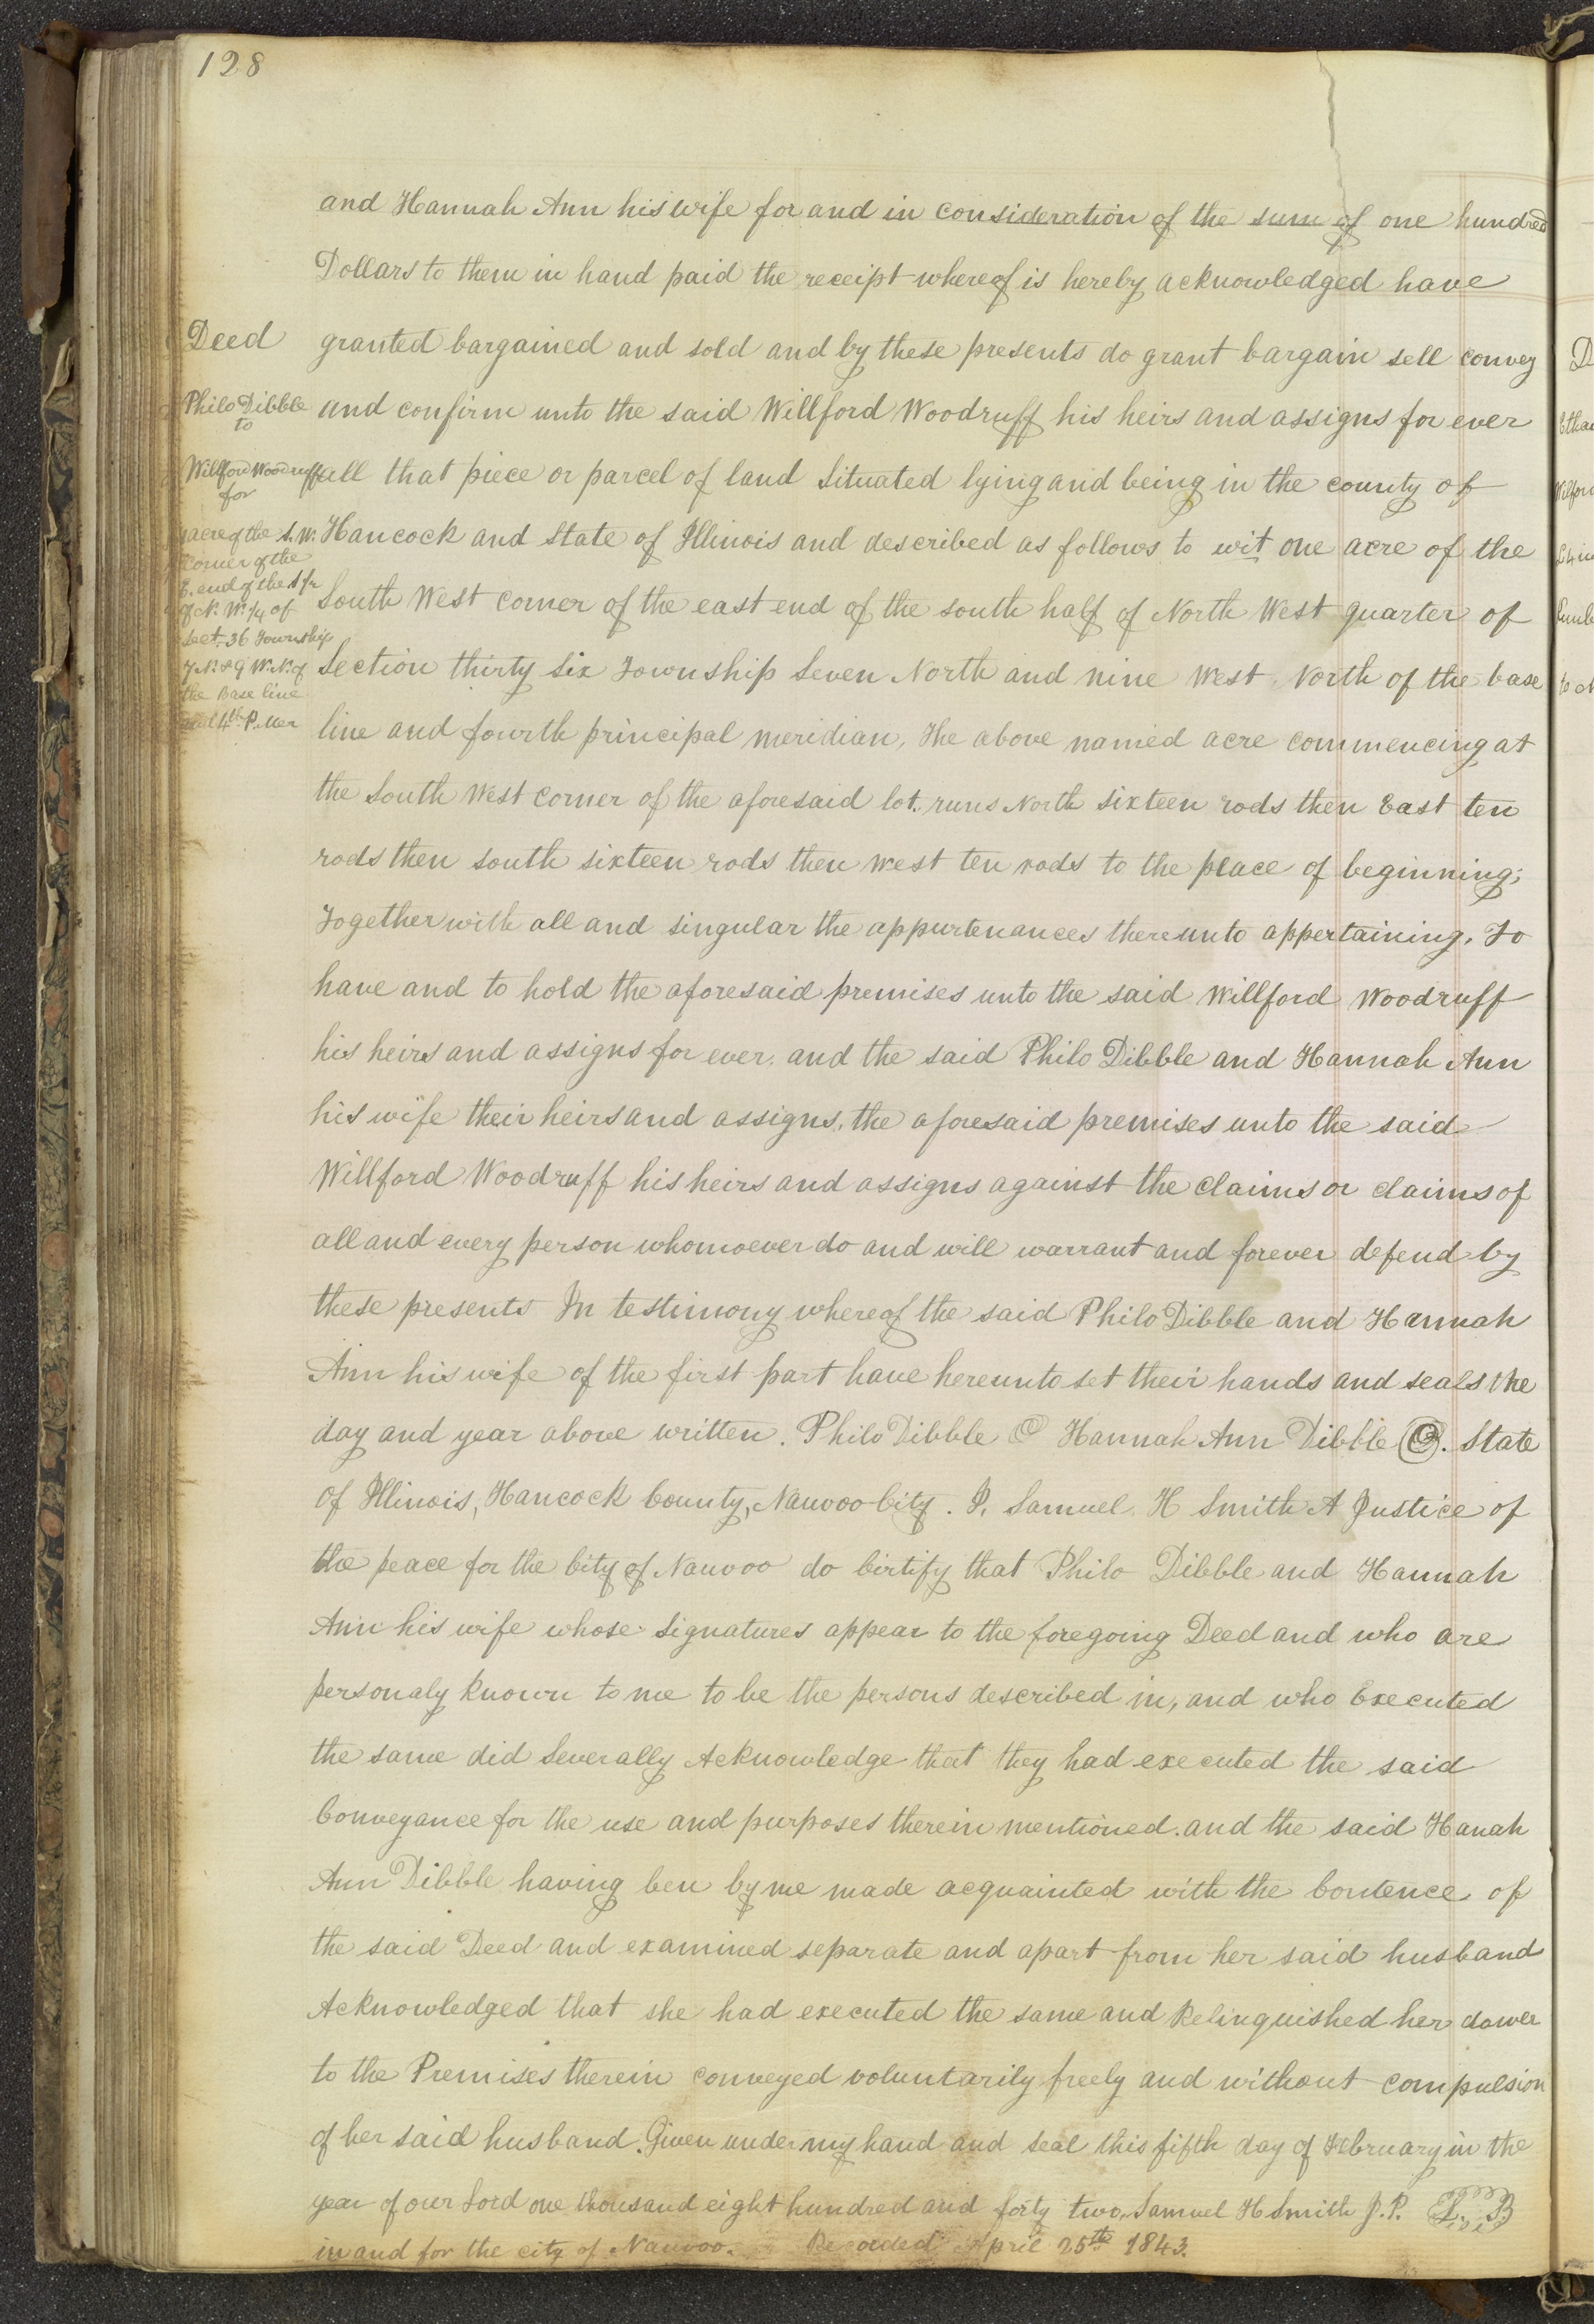 128
and Hannah Ann his wife for and in consideration of the sum of one hundred
Dollars to them in hand paid the receipt whereof is hereby acknowledged have
Deed
granted bargained and sold and by these presents do grant bargain sell convey
Philo Dibble
to
and confirm unto the said Willford Woodruff his heirs and assigns for ever
Willford Woodruff
for
all that piece or parcel of land Situated lying and being in the county of
acre of the S.W.
Hancock and State of Illinois and described as follows to wit one acre of the
Corner of the
E. end of the
South West corner of the east end of the south half of North West quarter of
of N. W. 1/4 of
Sect. 36 Township
Section thirty Six Township Seven North and nine West North of the base
7 N. & 9 W. N. of
the Base line
and 4th P. Mer
line and fourth principal meridian, The above named acre commencing at
the South West corner of the aforesaid lot. runs North sixteen rods then East ten
rods then south sixteen rods then west ten rods to the place of beginning;
Together with all and singular the appurtenances thereunto appertaining. To
have and to hold the aforesaid premises unto the said Willford Woodruff
his heirs and assigns for ever. and the said Philo Dibble and Hannah Ann
his wife their heirs and assigns, the aforesaid premises unto the said
Willford Woodruff his heirs and assigns against the claims or claims of
all and every person whomoever do and will warrant and forever defend by
these presents In testimony whereof the said Philo Dibble and Hannah
Ann his wife of the first part have hereunto set their hands and seals the
day and year above written. Philo Dibble Hannah Ann Dibble. State
of Illinois, Hancock County, Nauvoo City. I, Samuel H Smith A Justice of
the peace for the City of Nauvoo do Cirtify that Philo Dibble and Hannah
Ann his wife whose Signatures appear to the foregoing Deed and who are
personaly known to me to be the persons described in, and who Executed
the same did Severally Acknowledge that they had executed the said
Conveyance for the use and purposes therein mentioned. and the said Hanah
Ann Dibble having ben by me made acquainted with the Contence of
the said Deed and examined separate and apart from her said husband
Acknowledged that she had executed the same and Relinquished her dower
to the Premises therein conveyed voluntarily freely and without compulsion
of her said husband. Given under my hand and seal this fifth day of February in the
year of our Lord one thousand eight hundred and forty two. Samuel H Smith J.P.
in and for the city of Nauvoo. Recorded April 25th 1843.